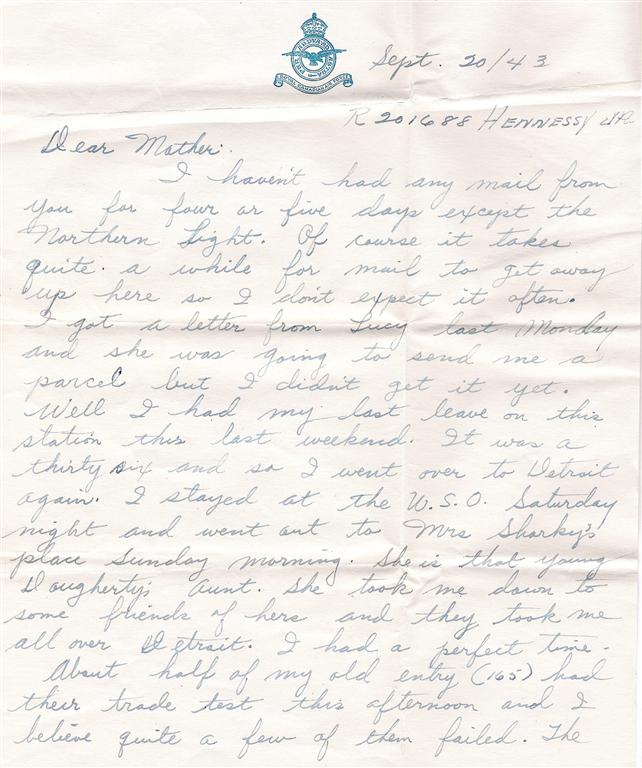 PER ARDUA AD ASTRA
ROYAL CANADIAN AIR FORCE
Sept. 20/43
R 201688 HENNESSY JR.
Dear Mother:
I haven't had any mail from
you for four or five days except the
Northern Light. Of course it takes
quite a while for mail to get away
up here so I don't expect it often.
I got a letter from Lucy last Monday
and she was going to send me a
parcel but I didn't get it yet.
Well I had my last leave on this
station this last weekend. It was a
thirty six and so I went over to Detroit
again. I stayed at the U.S.O. Saturday
night and went out to Mrs Sharky's
place Sunday morning. She is that young
Daugherty's Aunt. She took me down to
some friends of hers and they took me
all over Detroit. I had a perfect time.
About half of my old entry (165) had
their trade test this afternoon and I
believe quite a few of them failed. The